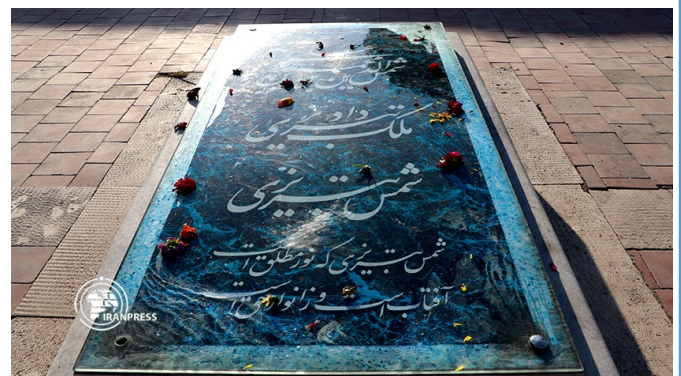 شمس
ملک داد تبریزی
شمس تبریزی
شمس تبریزی که نور مطلق است
آفتاب است و ز انوار حق است
IRANPRESS